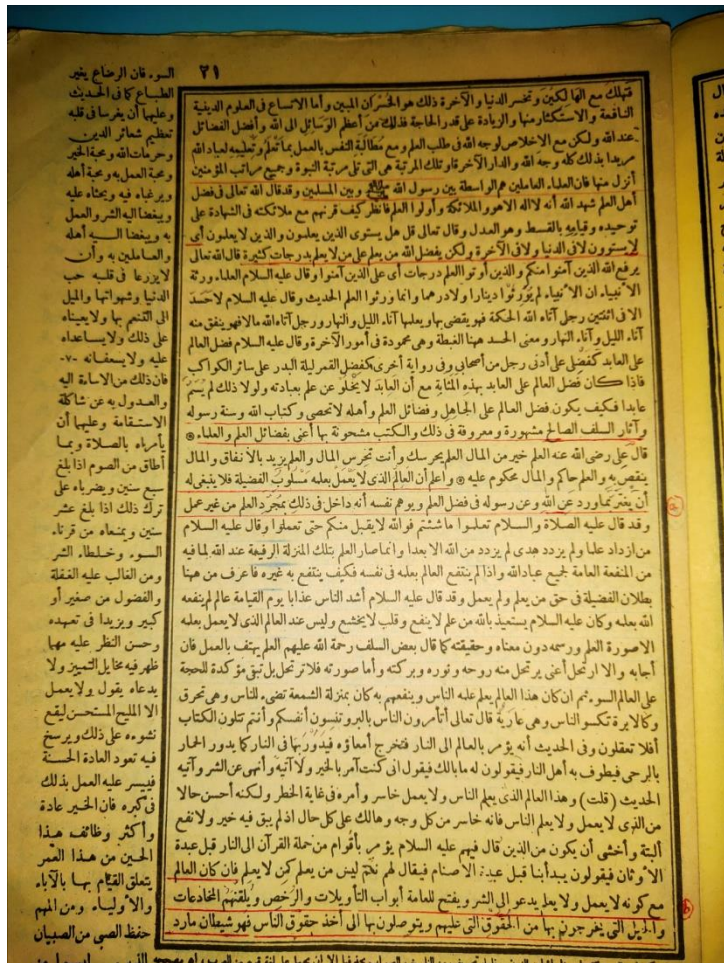 ٢١
فتهلك مع الهالكين وتخسر الدنيا والآخرة ذلك هو الخسران المبين وأما الاتساع فى العلوم الدينية
النافعة والاستكثار منها والزيادة على قدر الحاجة فذلك من أعظم الوسائل الى الله وأفضل الفضائل
عند الله ولكن مع الاخلاص لوجه الله فى طلب العلم ومع مطالبة النفس بالعمل بما تعلم وتعليمه لعباد الله
مريدا بذلك كله وجه الله والدار الآخرة وتلك المرتبة هى التى تلى مرتبة النبوة وجميع مراتب المؤمنين
أنزل منها فان العلماء العاملين هم الواسطة بين رسول الله ﷺ وبين المسلمين وقد قال الله تعالى فى فضل
أهل العلم شهد الله أنه لا اله الا هو والملائكة وأولوا العلم فانظر كيف قرنهم مع ملائكته فى الشهادة على
توحيده وقيامه بالقسط وهو العدل وقال تعالى قل هل يستوى الذين يعلمون والذين لا يعلمون أى
لا يستوون لا فى الدنيا ولا فى الآخرة ولكن يفضل الله من يعلم على من لا يعلم بدرجات كثيرة قال الله تعالى
يرفع الله الذين آمنوا منكم والذين أوتوا العلم درجات أى على الذين آمنوا وقال عليه السلام العلماء ورثة
الأنبياء ان الأنبياء لم يورثوا دينارا ولا درهما وانما ورثوا العلم الحديث وقال عليه السلام لا حسد
الا فى اثنتين رجل آتاه الله الحكمة فهو يقضى بها ويعلمها آناء الليل والنهار ورجل آتاه الله مالا فهو ينفق منه
آناء الليل وآناء النهار ومعنى الحسد ههنا الغبطة وهى محمودة فى أمور الآخرة وقال عليه السلام فضل العالم
على العابد كفضلى على أدنى رجل من أصحابى وفى رواية أخرى كفضل القمر ليلة البدر على سائر الكواكب
فاذا كان فضل العالم على العابد بهذه المثابة مع أن العابد لا يخلو عن علم بعبادته ولولا ذلك لم يسم
عابدا فكيف يكون فضل العالم على الجاهل وفضائل العلم وأهله لا تحصى وكتاب الله وسنة رسوله
وآثار السلف الصالح مشهورة ومعروفة فى ذلك والكتب مشحونة بها أعنى بفضائل العلم والعلماء *
قال على رضى الله عنه العلم خير من المال العلم يحرسك وأنت تحرس المال والعلم يزيد بالانفاق والمال
ينقص به والعلم حاكم والمال محكوم عليه * واعلم أن العالم الذى لا يعمل بعلمه مسلوب الفضيلة فلا ينبغى له
أن يغتر بما ورد عن الله وعن رسوله فى فضل العلم ويوهم نفسه أنه داخل فى ذلك بمجرد العلم من غير عمل
وقد قال عليه الصلاة والسلام تعلموا ما شئتم فوالله لا يقبل منكم حتى تعملوا وقال عليه السلام
من ازداد علما ولم يزدد هدى لم يزدد من الله الا بعدا وانما صار العلم بتلك المنزلة الرفيعة عند الله لما فيه
من المنفعة العامة لجميع عباد الله واذا لم ينتفع العالم بعلمه فى نفسه فكيف ينتفع به غيره فاعرف من ههنا
بطلان الفضيلة فى حق من يعلم ولم يعمل وقد قال عليه السلام أشد الناس عذابا يوم القيامة عالم لم ينفعه
الله بعلمه وكان عليه السلام يستعيذ بالله من علم لا ينفع وقلب لا يخشع وليس عند العالم الذى لا يعمل بعلمه
الا صورة العلم ورسمه دون معناه وحقيقته كما قال بعض السلف رحمة الله عليهم العلم يهتف بالعمل فان
أجابه والا ارتحل أعنى يرتحل منه روحه ونوره وبركته وأما صورته فلا ترتحل بل تبقى مؤكدة للحجة
على العالم السوء ثم ان كان هذا العالم يعلم علمه الناس وينفعهم به كان بمنزلة الشمعة تضىء للناس وهى تحرق
وكالابرة تكسو الناس وهى عارية قال تعالى أتأمرون الناس بالبر وتنسون أنفسكم وأنتم تتلون الكتاب
أفلا تعقلون وفى الحديث أنه يؤمر بالعالم الى النار فتخرج أمعاؤه فيدور بها فى النار كما يدور الحمار
بالرحى فيطوف به أهل النار فيقولون له ما بالك فيقول انى كنت آمر بالخير ولا آتيه وأنهى عن الشر وآتيه
الحديث (قلت) وهذا العالم الذى يعلم الناس ولا يعمل خاسر وأمره فى غاية الخطر ولكنه أحسن حالا
من الذى لا يعمل ولا يعلم الناس فانه خاسر من كل وجه وهالك على كل حال اذ لم يبق فيه خير ولا نفع
ألبتة وأخشى أن يكون من الذين قال فيهم عليه السلام يؤمر بأقوام من حملة القرآن الى النار قبل عبدة
الأوثان فيقولون يبدأ بنا قبل عبدة الأصنام فيقال لهم نعم ليس من يعلم كمن لا يعلم فان كان العالم
مع كونه لا يعمل ولا يعلم يدعو الى الشر ويفتح للعامة أبواب التأويلات والرخص ويلقنهم المخادعات
والحيل التى يخرجون بها من الحقوق التى عليهم ويتوصلون بها الى أخذ حقوق الناس فهو شيطان مارد
السوء فان الرضاع يغير
الطباع كما فى الحديث
وعليهما أن يغرسا فى قلبه
تعظيم شعائر الدين
وحرمات الله ومحبة الخير
ومحبة العمل به ومحبة أهله
ويرغباه فيه ويحثاه عليه
ويبغضا اليه الشر والعمل
به ويبغضا اليه أهله
والعاملين به وأن
لا يزرعا فى قلبه حب
الدنيا وشهواتها والميل
الى التنعم بها ولا يعيناه
على ذلك ولا يساعداه
عليه ولا يسعفانه -٧-
فان ذلك من الاساءة اليه
والعدول به عن شاكلة
الاستقامة وعليهما أن
يأمراه بالصلاة وبما
أطاق من الصوم اذا بلغ
سبع سنين ويضرباه على
ترك ذلك اذا بلغ عشر
سنين ويمنعاه من قرناء
السوء وخلطاء الشر
ومن الغالب عليه الغفلة
والفضول من صغير أو
كبير ويزيدا فى تعهده
وحسن النظر عليه مهما
ظهر فيه مخايل التمييز ولا
يدعاه يقول ولا يعمل
الا المليح المستحسن ليقع
نشوءه على ذلك ويرسخ
فيه تعود العادة الحسنة
فييسر عليه العمل بذلك
فى كبره فان الخير عادة
وأكثر وظائف هذا
الحين من هذا العمر
يتعلق القيام بها بالآباء
والأولياء ومن المهم
حفظ الصبى من الصبيان